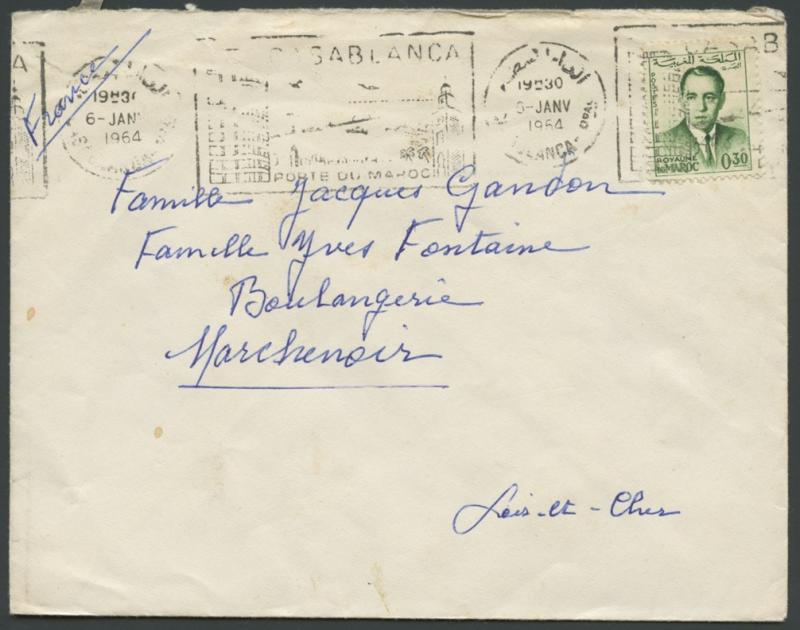 A
CASABLANCA
AB
19H30
6-JANV
1964
PORTE DU MAROC
الدار البيضاء
19H30
6-JANV
1964
المملكة المغربية
ROYAUME
DU MAROC
0.30
France
Famille Jacques Gandon
Famille Yves Fontaine
Boulangerie
Marchenoir
Loir-et-Cher